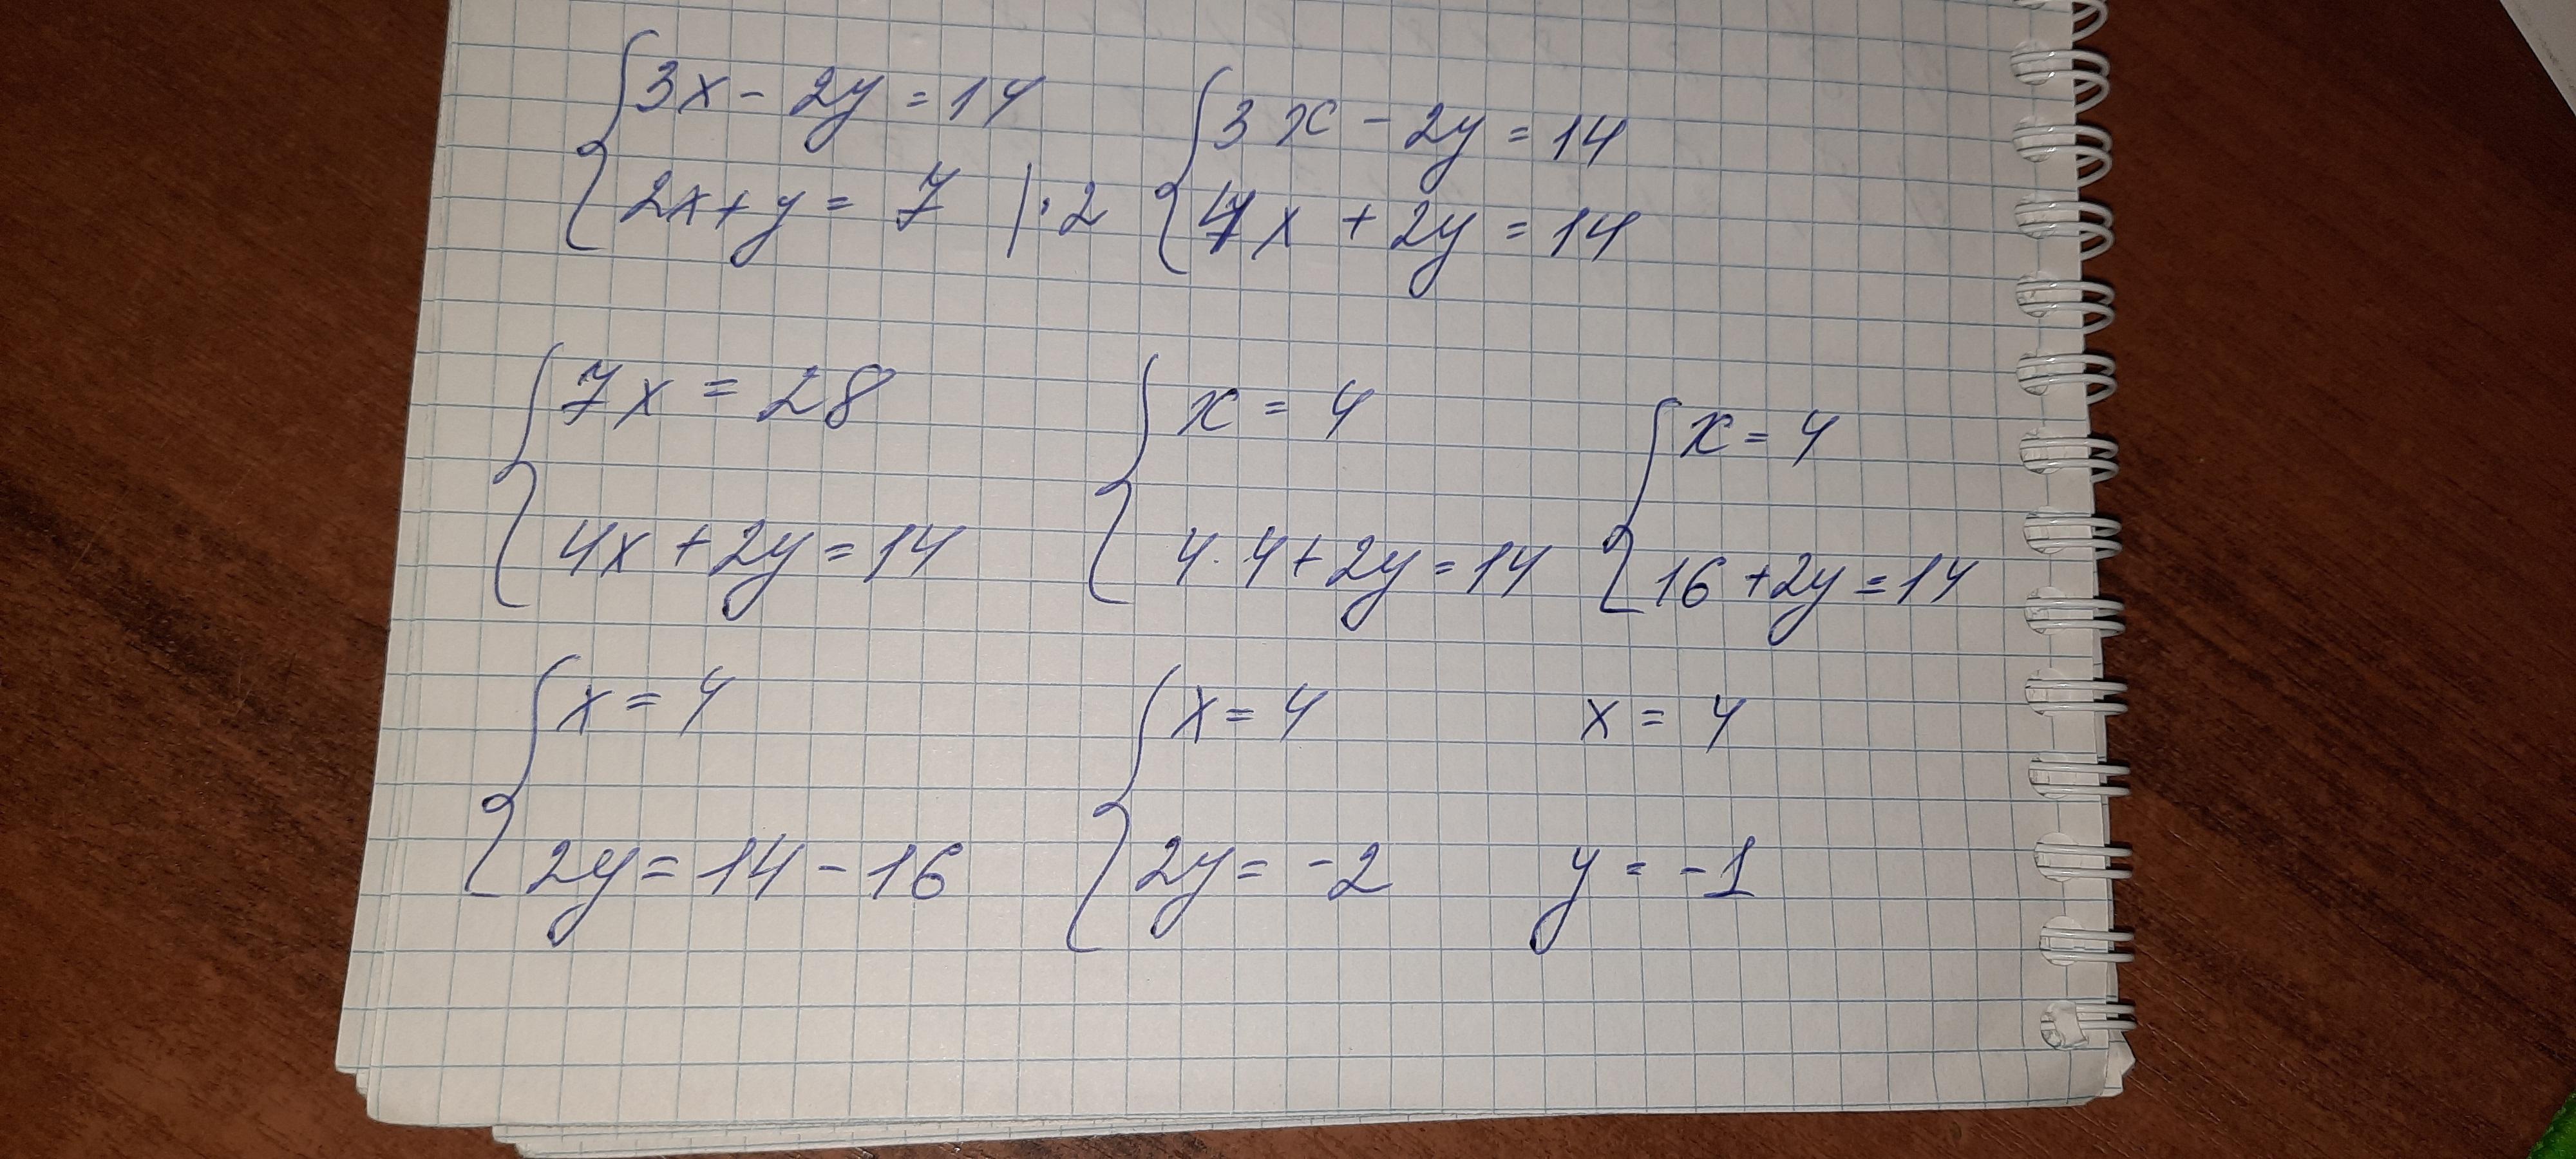 3x - 2y = 14
2x + y = 7 | · 2
3x - 2y = 14
4x + 2y = 14
7x = 28
4x + 2y = 14
x = 4
4 · 4 + 2y = 14
x = 4
16 + 2y = 14
x = 4
2y = 14 - 16
x = 4
2y = -2
x = 4
y = -1